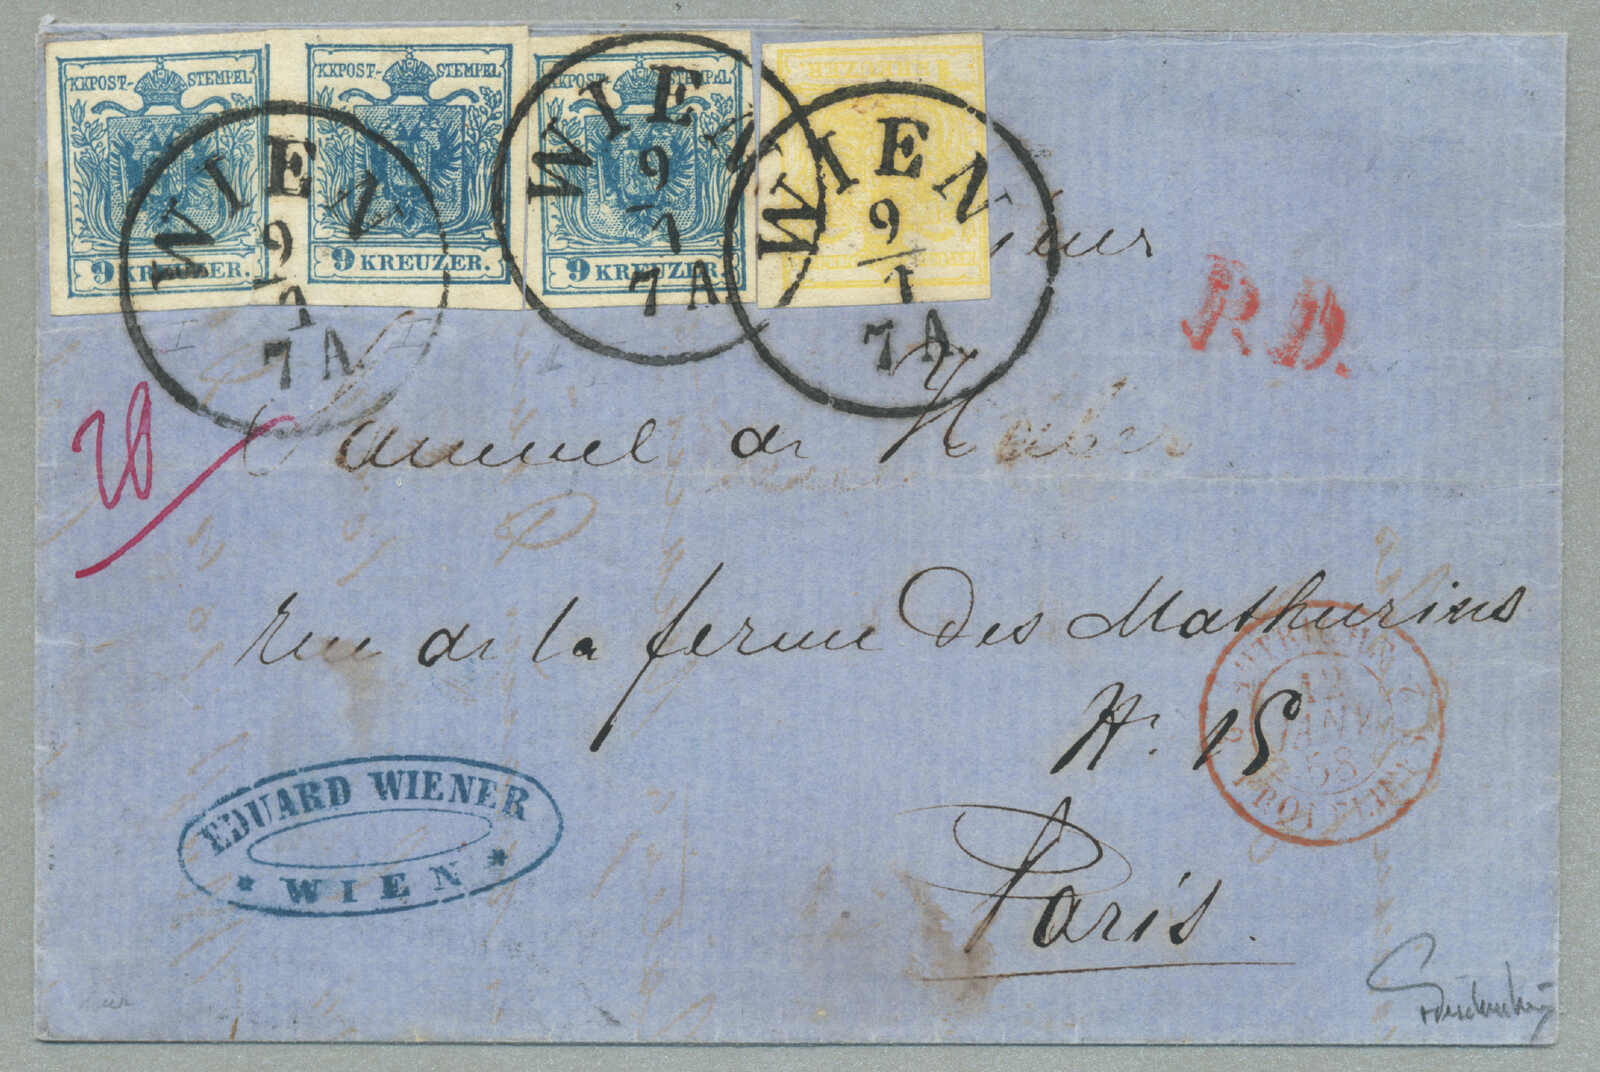 KKPOST-STEMPEL
9 KREUZER.
KKPOST-STEMPEL
9 KREUZER.
KKPOST-STEMPEL
9 KREUZER.
1 KREUZER
WIEN
9
1
7A
WIEN
9
1
7A
WIEN
9
1
7A
P.D.
Samuel de Haber
Rue de la ferme des Mathurins
N. 15
Paris.
12
JANV.
58
EDUARD WIENER
* WIEN *